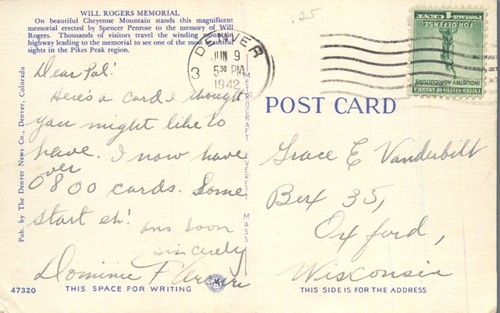 WILL ROGERS MEMORIAL
On beautiful Cheyenne Mountain stands this magnificent
memorial erected by Spencer Penrose to the memory of Will
Rogers. Thousands of visitors travel the winding mountain
highway leading to the memorial to see one of the most beautiful
sights in the Pikes Peak region.
.25
DENVER
3
JUN 9
5 30 PM
1942
FOR DEFENSE
1 CENT
INDUSTRY AGRICULTURE
UNITED STATES OF AMERICA
Dear Pal:
Here's a card I thought
you might like to
have. I now have
over
800 cards. Some
start eh!
ans soon
sincerely
Dominic F
Pub. by The Denver News Co., Denver, Colorado
METROCRAFT EVERETT MASS
POST CARD
Grace E Vanderbilt
Box 35,
Oxford,
Wisconsin
47320
THIS SPACE FOR WRITING
M
THIS SIDE IS FOR THE ADDRESS